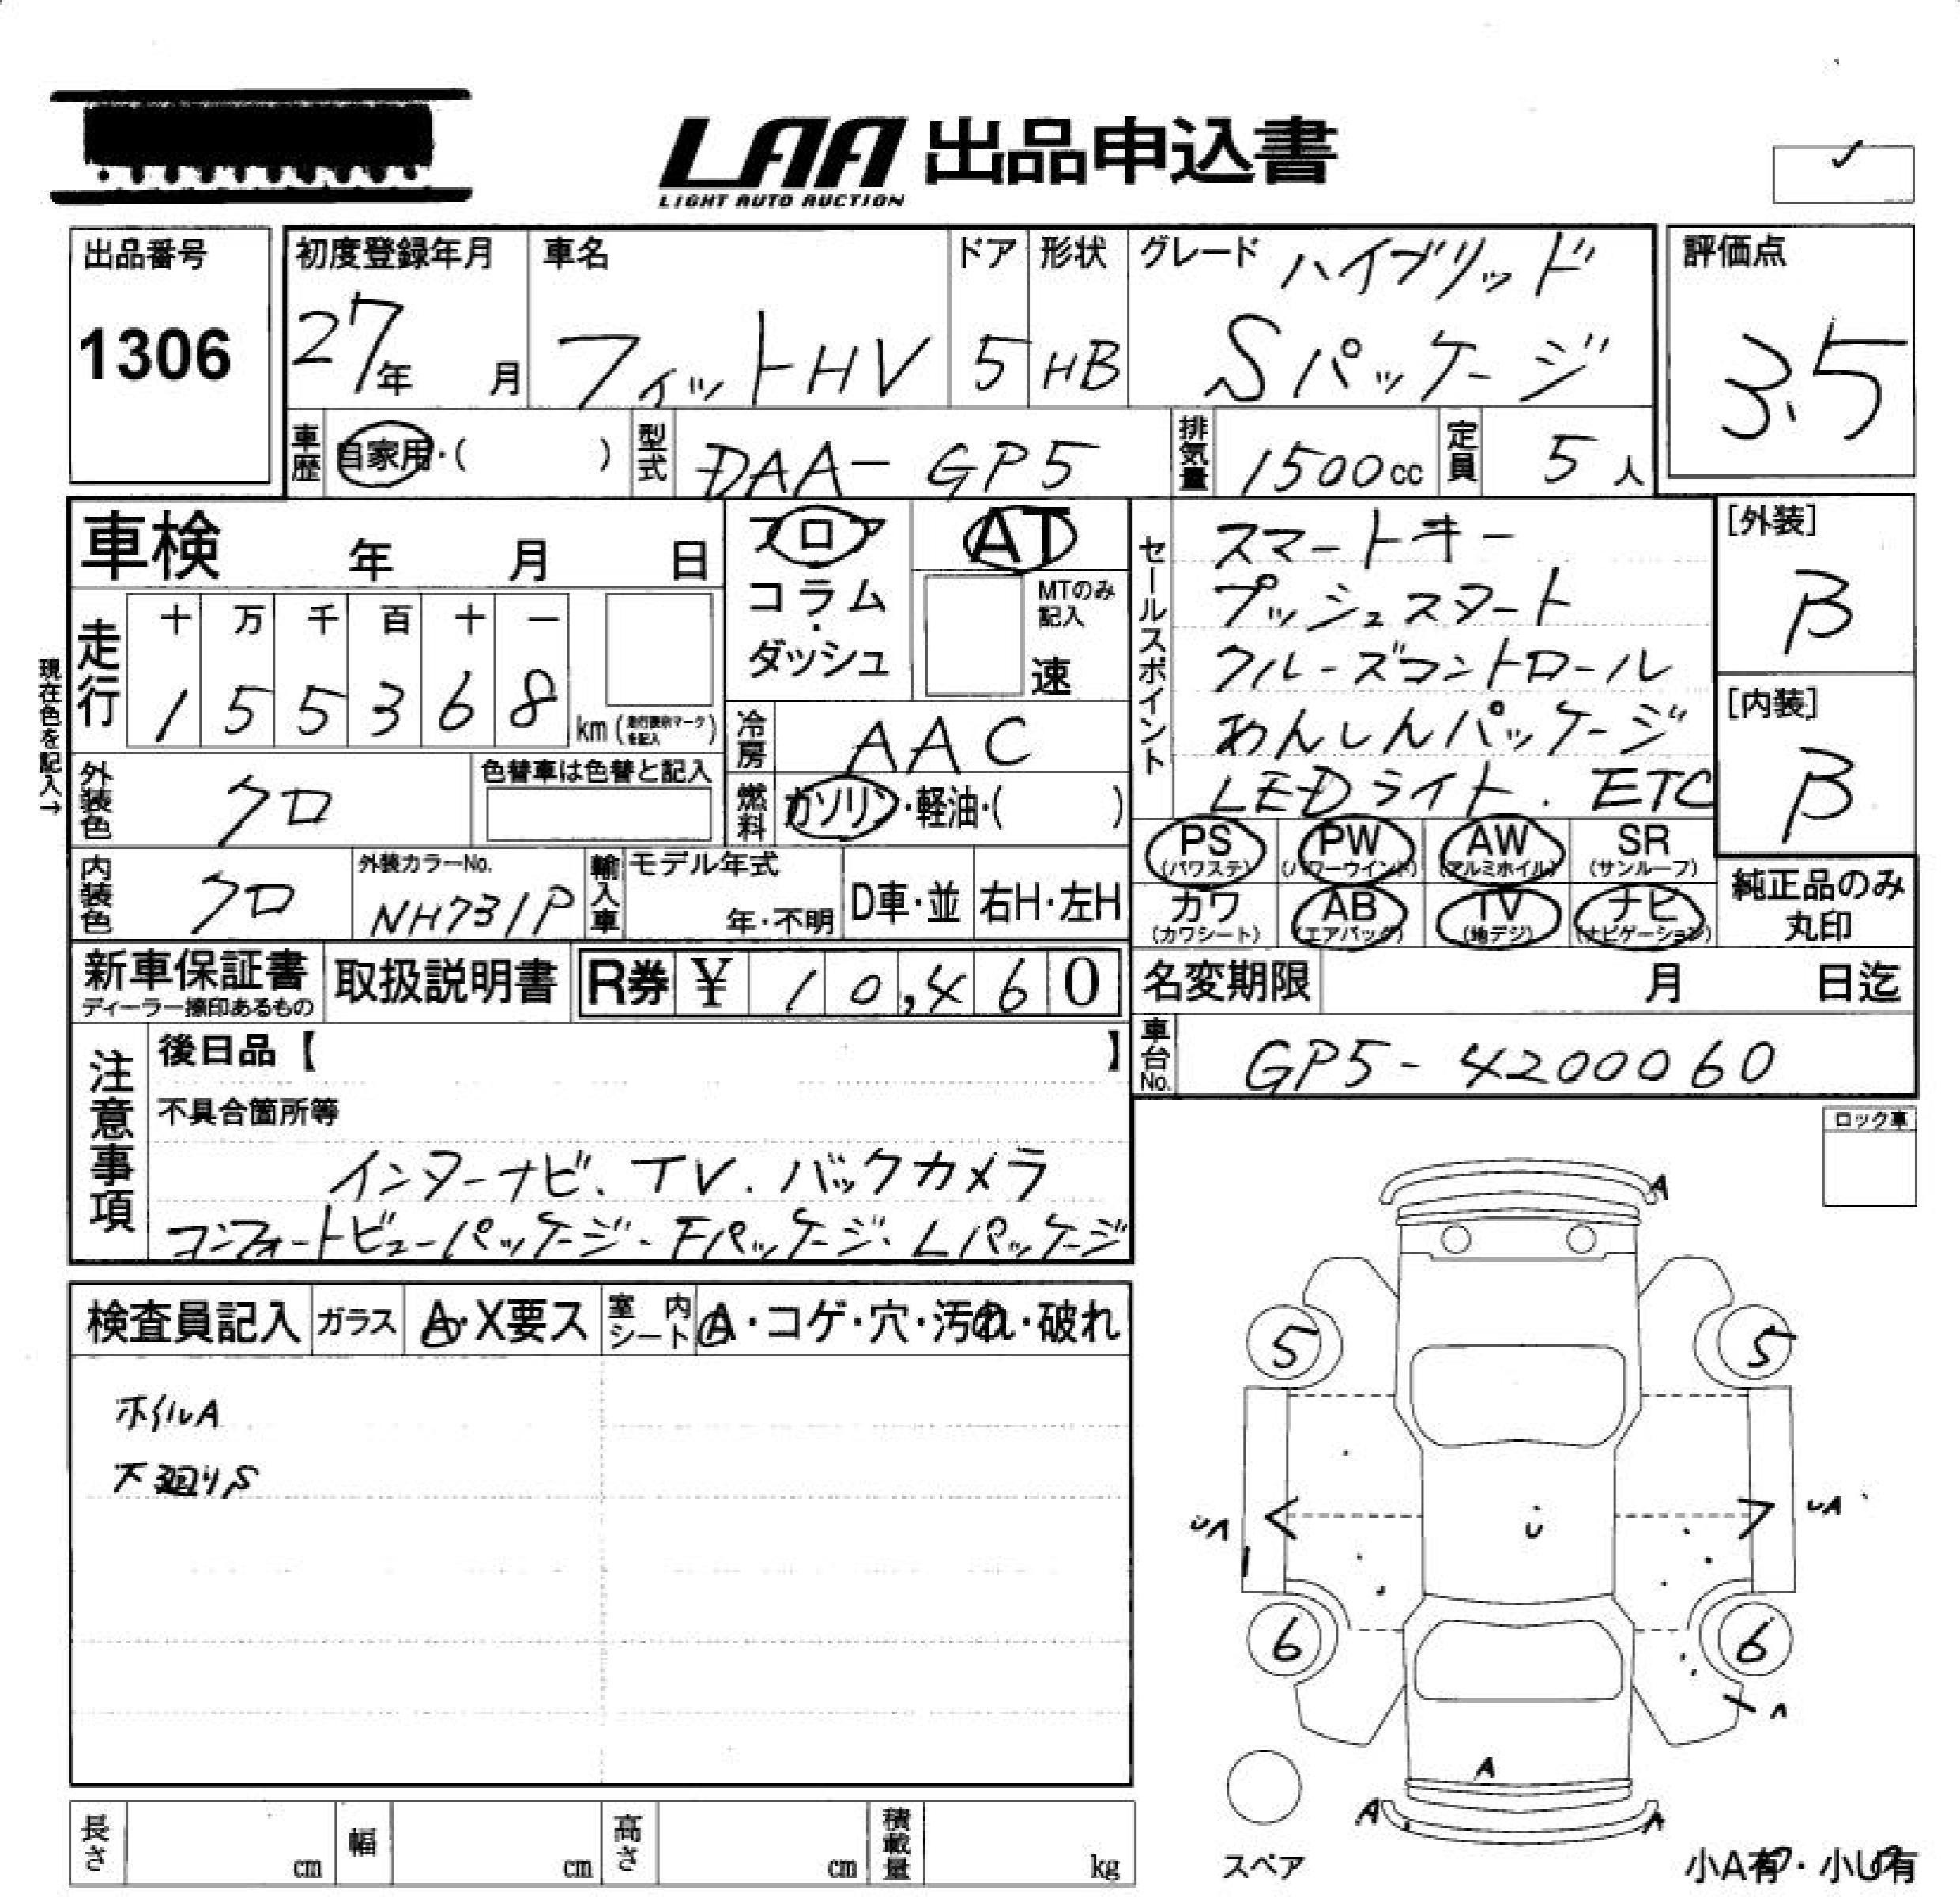 LAA 出品申込書
LIGHT AUTO AUCTION
出品番号
1306
初度登録年月
27年 月
車名
フィットHV
ドア
5
形状
HB
グレード ハイブリッド
Sパッケージ
評価点
3.5
車歴 自家用・( )
型式 DAA-GP5
排気量 1500cc
定員 5人
車検 年 月 日
フロア
コラム
・
ダッシュ
AT
MTのみ
記入
速
セールスポイント
スマートキー
プッシュスタート
クルーズコントロール
あんしんパッケージ
LEDライト. ETC
[外装]
B
[内装]
B
現在色を記入→
走行
十 万 千 百 十 一
1 5 5 3 6 8 km (走行表示マークを記入)
冷房 AAC
燃料 ガソリン・軽油・( )
外装色 クロ
色替車は色替と記入
内装色 クロ
外装カラーNo.
NH731P
輸入車
モデル年式
年・不明
D車・並
右H・左H
PS (パワステ)
PW (パワーウインド)
AW (アルミホイル)
SR (サンルーフ)
カワ (カワシート)
AB (エアバッグ)
TV (地デジ)
ナビ (ナビゲーション)
純正品のみ
丸印
新車保証書
ディーラー捺印あるもの
取扱説明書
R券 ¥ 10,460
名変期限 月 日迄
車台No. GP5-4200060
注意事項
後日品【 】
不具合箇所等
インターナビ、TV. バックカメラ
コンフォートビューパッケージ. Fパッケージ. Lパッケージ
ロック車
検査員記入
ガラス A・X要ス
室内シート A・コゲ・穴・汚れ・破れ
ホイルA
下廻りS
A
5 5
UA U UA
6 6
A
A
A A
スペア
小A有・小U有
長さ cm
幅 cm
高さ cm
積載量 kg